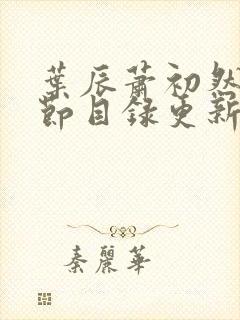 葉辰蕭初然
節目錄更新
秦麗華